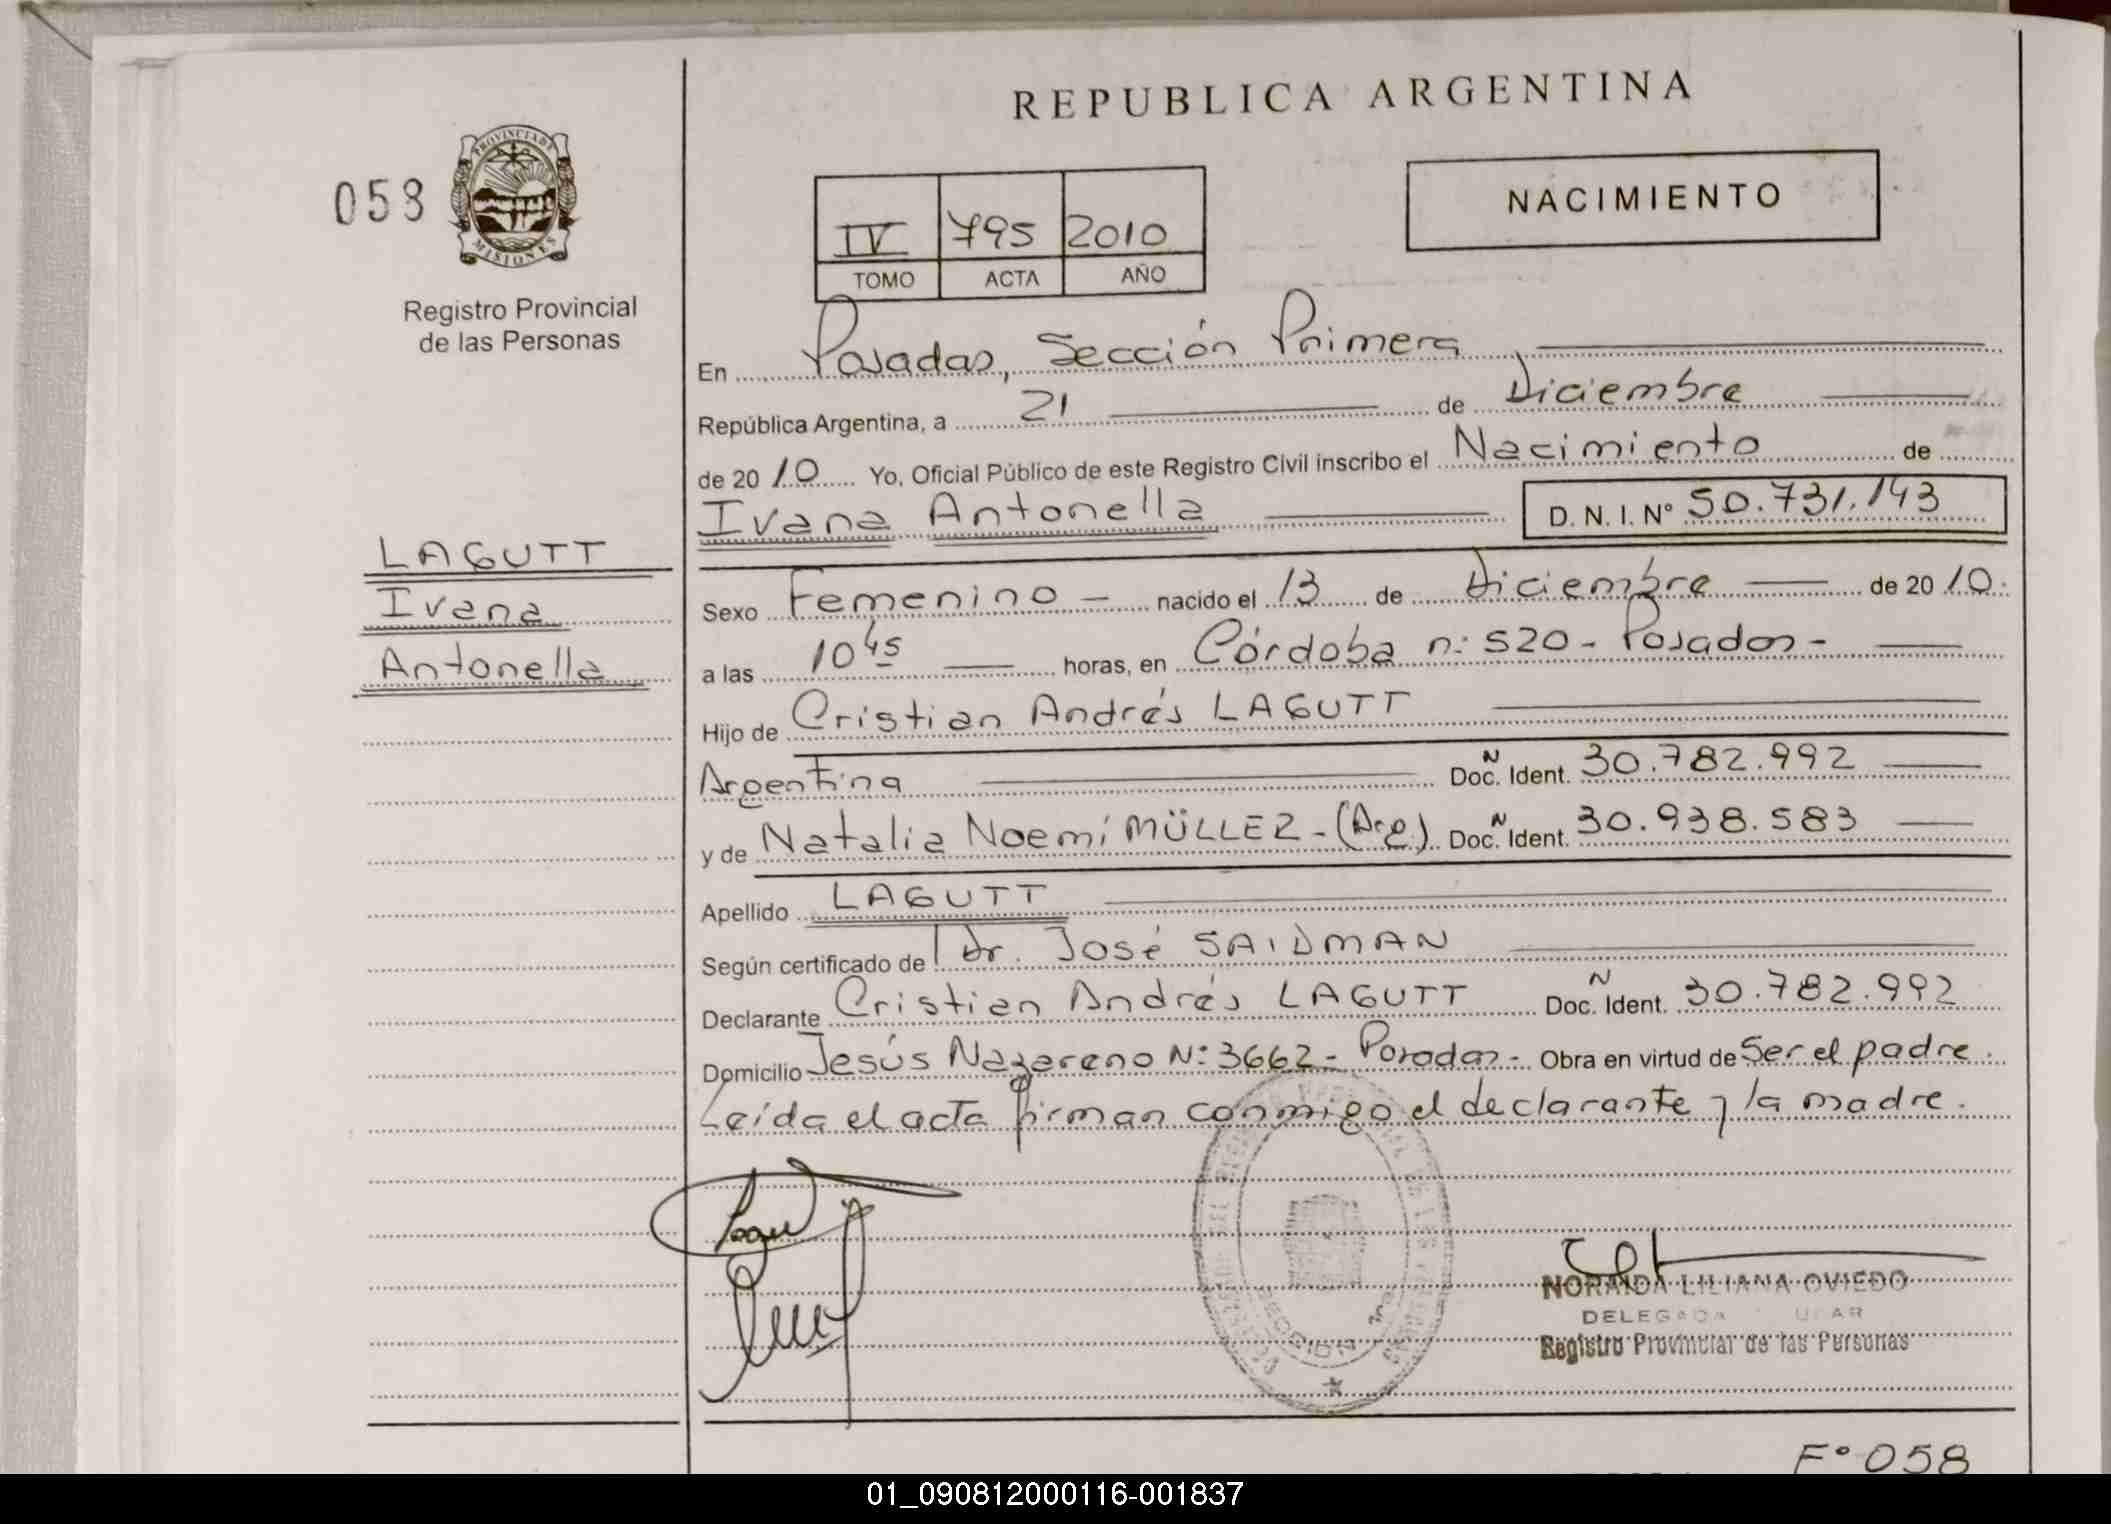 REPUBLICA ARGENTINA
058
PROVINCIA DE
MISIONES
Registro Provincial
de las Personas
IV 795 2010
TOMO ACTA AÑO
NACIMIENTO
En Posadas, Sección Primera
República Argentina, a 21 de Diciembre
de 2010 Yo, Oficial Público de este Registro Civil inscribo el Nacimiento de
Ivana Antonella D. N. I. N° 50.731.143
LAGUTT
Ivana
Antonella
Sexo Femenino - nacido el 13 de Diciembre de 2010.
a las 10 45 horas, en Córdoba n: 520 - Posadas -
Hijo de Cristian Andrés LAGUTT
Argentina Doc. Ident. 30.782.992
y de Natalia Noemí MÜLLER - (Arg.) Doc. Ident. 30.938.583
Apellido LAGUTT
Según certificado de Dr. José SAIDMAN
Declarante Cristian Andrés LAGUTT Doc. Ident. 30.782.992
Domicilio Jesús Nazareno N: 3662 - Posadas - Obra en virtud de Ser el padre.
Leída el acta firman conmigo el declarante y la madre.
NORAIDA LILIANA OVIEDO
Registro Provincial de las Personas
F° 058
01_090812000116-001837